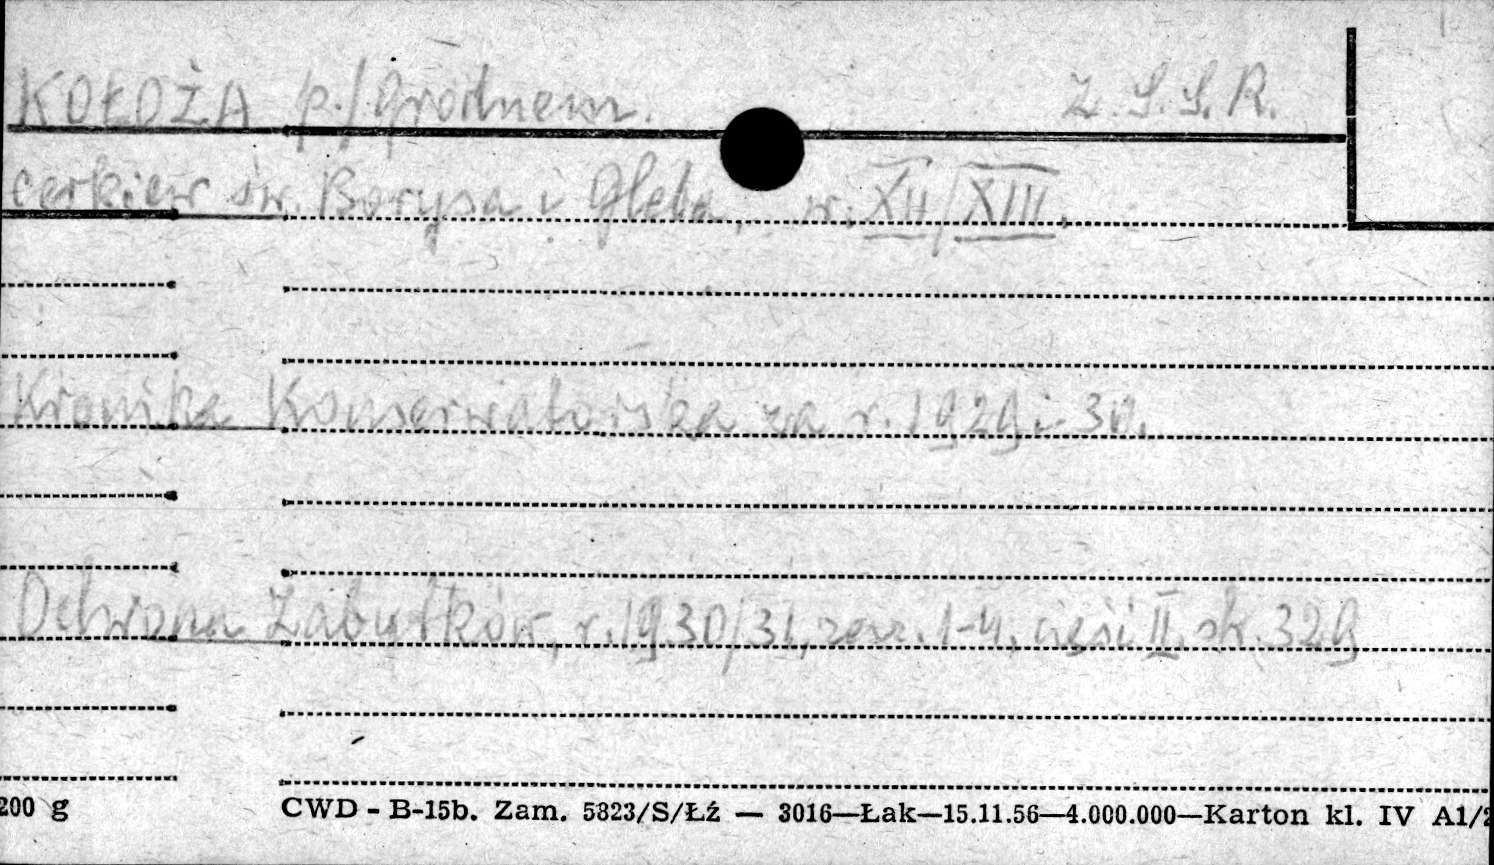 KOŁOŻA p./Grodnem. Z.S.S.R.
cerkiew św. Borysa i Gleba, w. XII/XIII.
Kronika Konserwatorska za r. 1929 i 30.
Ochrona Zabytków, r. 1930/31, zesz. 1-4, część II, str. 329
200 g CWD - B-15b. Zam. 5823/S/Łź — 3016—Łak—15.11.56—4.000.000—Karton kl. IV A1/2